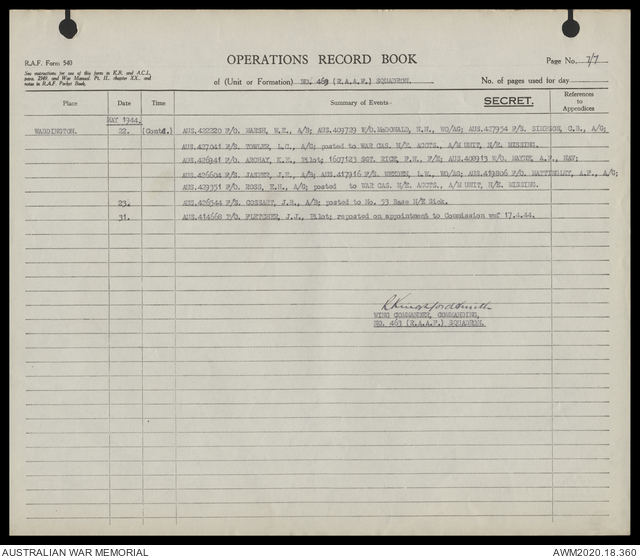 R.A.F. Form 540
See instructions for use of this form in K.R. and A.C.I.,
para. 2349, and War Manual, Pt. II., chapter XX., and
notes in R.A.F. Pocket Book.
OPERATIONS RECORD BOOK
of (Unit or Formation) NO. 463 (R.A.A.F.) SQUADRON.
Page No. 7/7
No. of pages used for day
Place Date Time Summary of Events SECRET. References to Appendices
MAY 1944.
WADDINGTON. 22. (Contd.) AUS.422220 F/O. MARSH, W.E., A/B; AUS.409729 W/O. McDONALD, N.H., WO/AG; AUS.427954 F/S. SIMPSON, C.B., A/G;
AUS.427041 F/S. FOWLER, L.C., A/G; posted to WAR CAS. N/E. ACCTS., A/M UNIT, N/E. MISSING.
AUS.426941 P/O. ARCHAY, K.M., Pilot; 1607123 SGT. RICE, F.H., F/E; AUS.409913 W/O. MAYNE, A.F., NAV;
AUS.426604 F/S. JASPER, J.K., A/B; AUS.417916 F/S. WEDDEN, L.W., WO/AG; AUS.419806 F/O. MATTINGLEY, A.F., A/G;
AUS.429331 F/O. ROSS, K.H., A/G; posted to WAR CAS. N/E. ACCTS., A/M UNIT, N/E. MISSING.
23. AUS.426544 F/S. COSSART, J.R., A/B; posted to No. 53 Base N/E Sick.
31. AUS.414668 P/O. FLETCHER, J.J., Pilot; reposted on appointment to Commission wef 17.4.44.
R Kingsfordsmith
WING COMMANDER, COMMANDING,
NO. 463 (R.A.A.F.) SQUADRON.
AUSTRALIAN WAR MEMORIAL
AWM2020.18.360